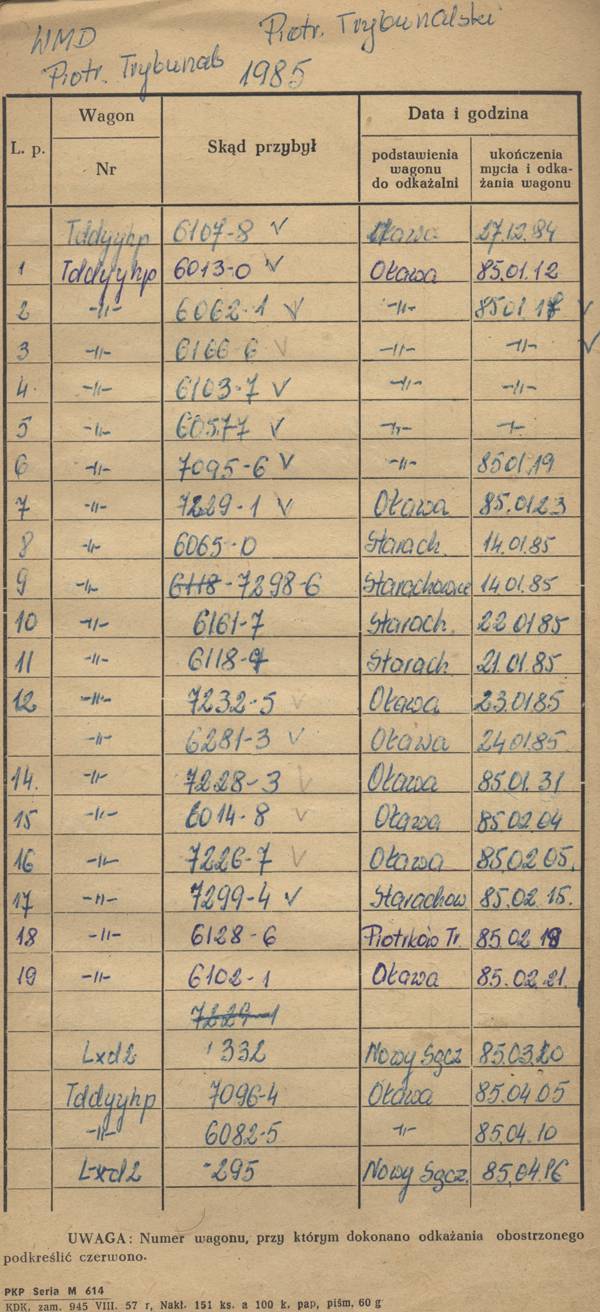 WMD Piotr. Trybunalski
Piotr. Trybunals 1985
Wagon Data i godzina
L. p. Skąd przybył
Nr podstawienia wagonu do odkażalni ukończenia mycia i odkażania wagonu
Tddyyhp 6107-8 ✓ Oława 27.12.84
1 Tddyyhp 6013-0 ✓ Oława 85.01.12
2 -"- 6062-1 ✓ -"- 85.01.18 ✓
3 -"- 6166-6 ✓ -"- -"- ✓
4. -"- 6103-7 ✓ -"- -"-
5 -"- 6057-7 ✓ -"- -"-
6 -"- 7095-6 ✓ -"- 85.01.19
7 -"- 7229-1 ✓ Oława 85.01.23
8 -"- 6065-0 Starach. 14.01.85
9 -"- 6118-7298-6 Starachowice 14.01.85
10 -"- 6161-7 Starach. 22.01.85
11 -"- 6118-7 Starach. 21.01.85
12 -"- 7232-5 ✓ Oława 23.01.85
-"- 6281-3 ✓ Oława 24.01.85.
14. -"- 7228-3 ✓ Oława 85.01.31
15 -"- 6014-8 ✓ Oława 85.02.04
16 -"- 7226-7 ✓ Oława 85.02.05.
17 -"- 7299-4 ✓ Starachow 85.02.15.
18 -"- 6128-6 Piotrków Tr 85.02.18
19 -"- 6102-1 Oława 85.02.21.
7229-1
Lxd2 332 Nowy Sącz 85.03.20
Tddyyhp 7096-4 Oława 85.04.05
-"- 6082-5 -"- 85.04.10
Lxd2 -295 Nowy Sącz. 85.04.16
UWAGA: Numer wagonu, przy którym dokonano odkażania obostrzonego
podkreślić czerwono.
PKP Seria M 614
KDK, zam. 945 VIII. 57 r, Nakł. 151 ks. a 100 k. pap, piśm, 60 g